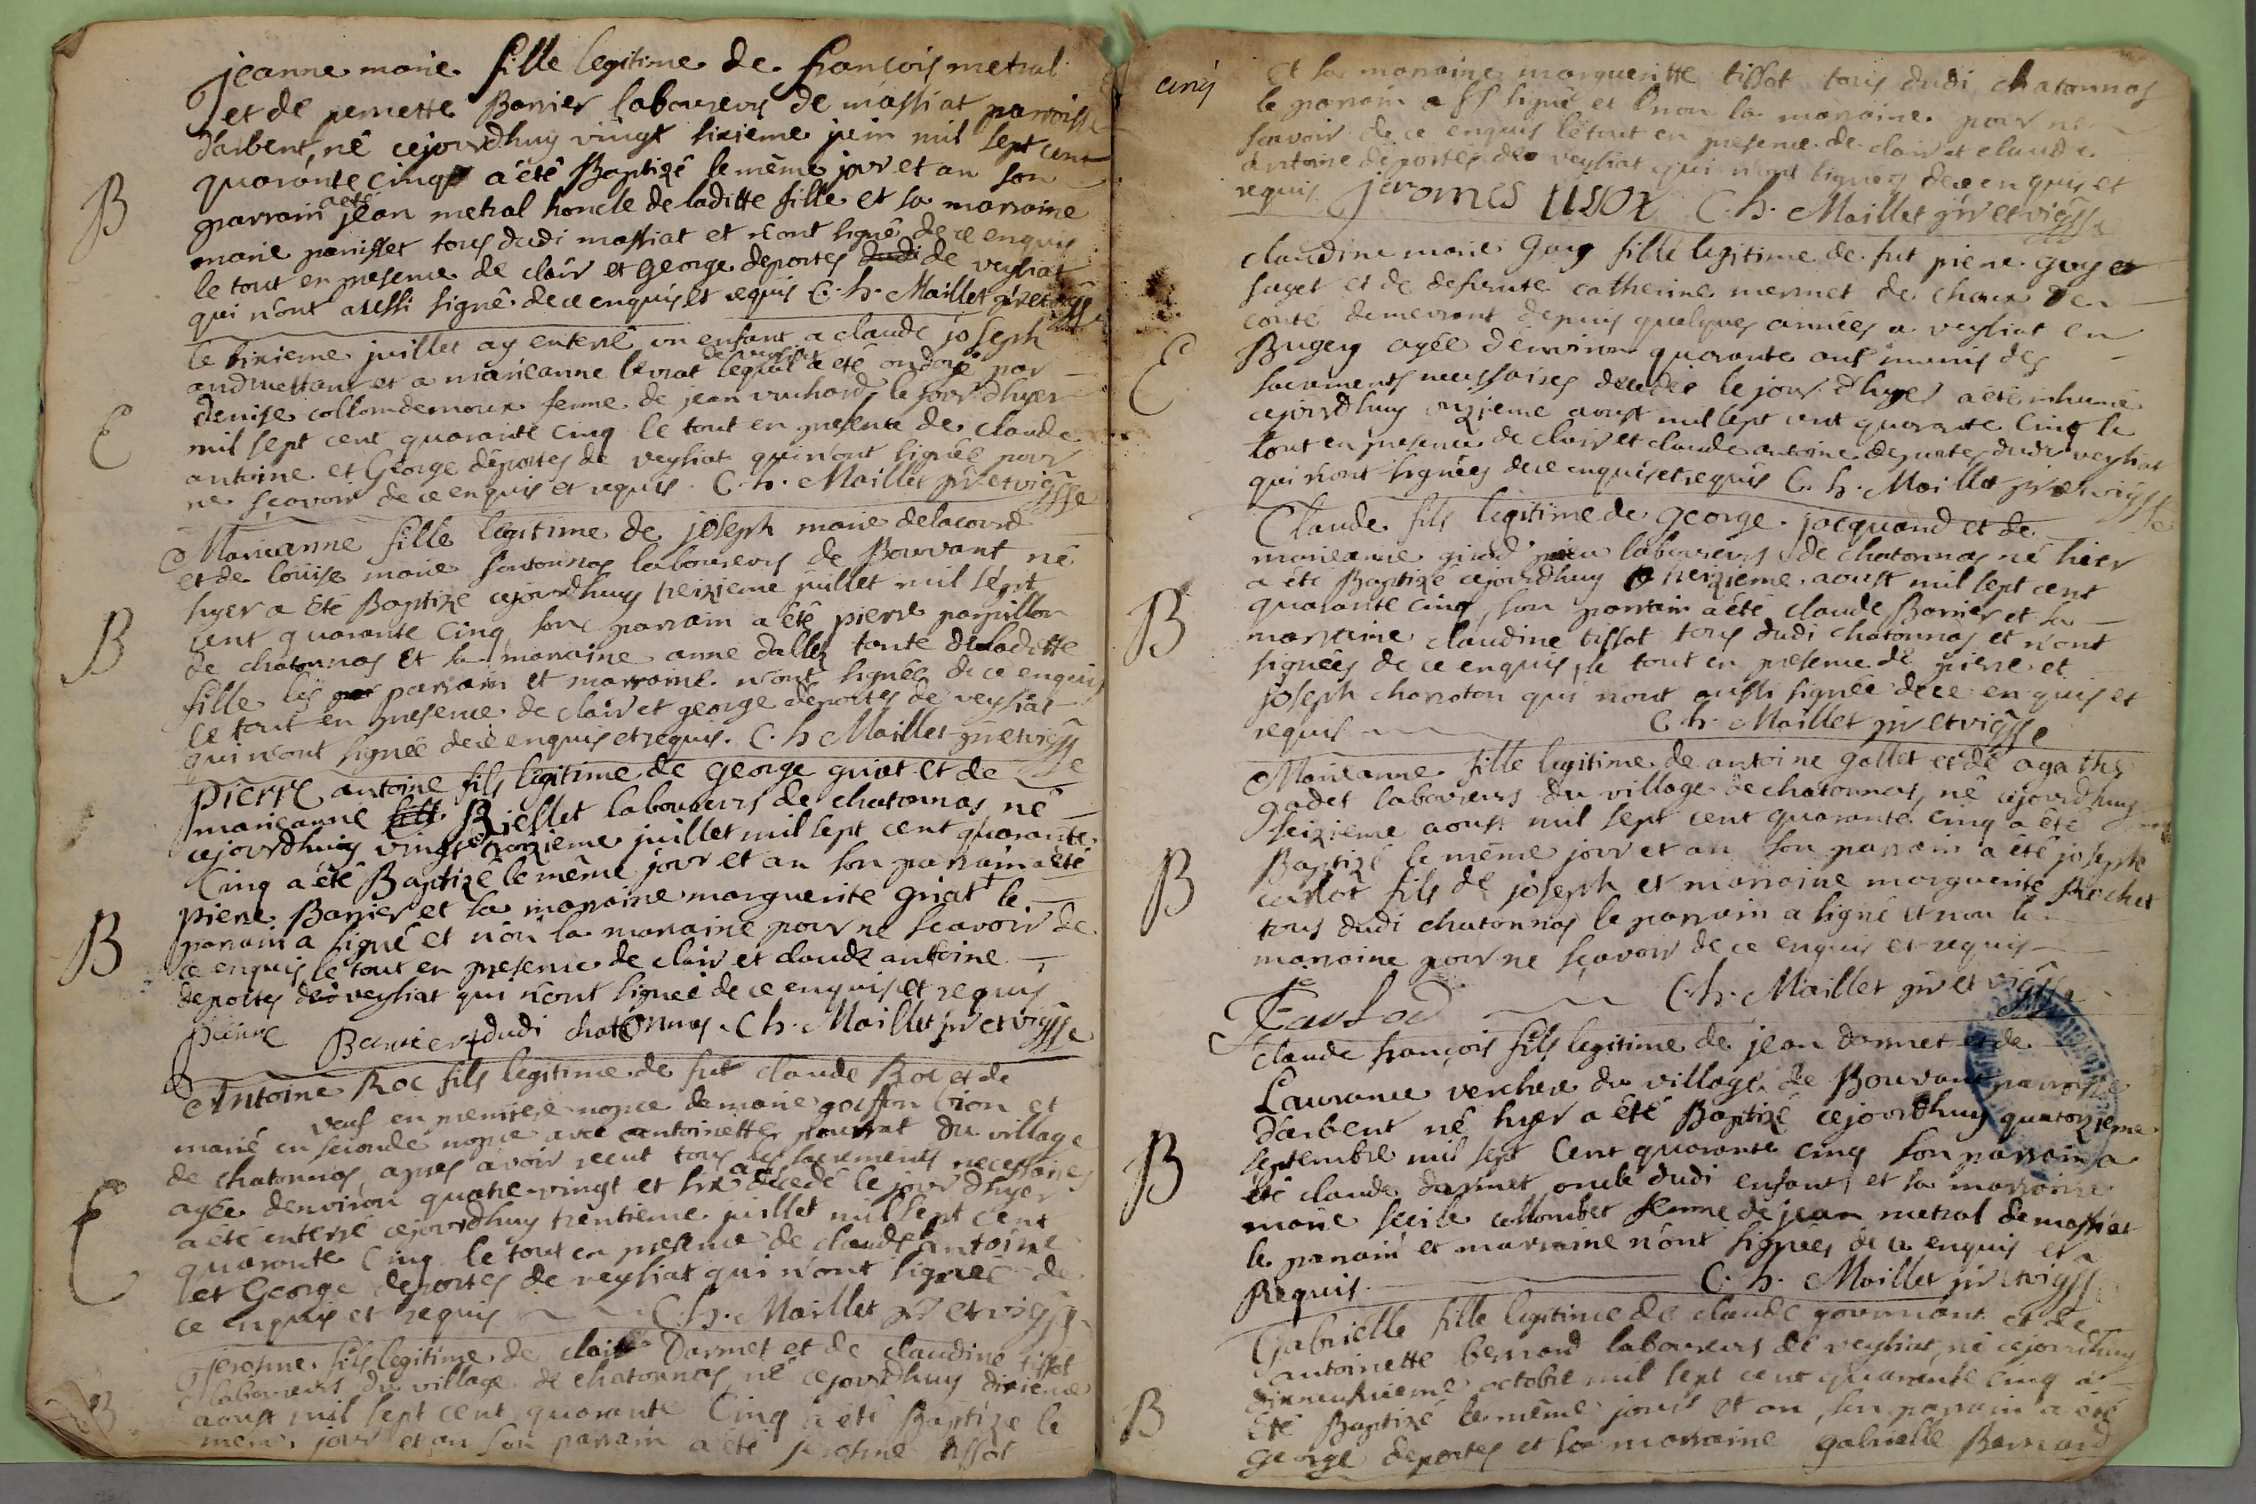 jeanne marie fille legitime de francois metral
et de pernette Barrier laboureurs de massiat parroisse
d'arbent, né cejourdhuy vingt sixieme juin mil sept cent
quarante cinq a été Baptizé le même jour et an son
parrain a été jean metral honcle de laditte fille et sa marraine
marie panisset tous dudi massiat et n'ont signé de ce enquis
le tout en presence de clair et george deportes dudi de veysiat
qui n'ont aussi signé de ce enquis et requis C. h. Maillet
B
le sixieme juillet ay enterré un enfant a claude joseph
et a marieanne levrat de veysiat lequel a été ondoié par
denise collomdemoux femme de jean vuchard le jour d'hyer
mil sept cent quarante cinq le tout en presence de claude
antoine et George déportes de veysiat qui n'ont signée pour
ne sçavoir de ce enquis et requis. C. h. Maillet
E
Marieanne fille legitime de joseph marie delacourd
et de loüise marie laboureurs de Bouvant né
hyer a été Baptizé cejourdhuy treizieme juillet mil sept
cent quarante cinq son parrain a été pierre papillon
de chatonnas et sa marraine anne dalles tante de laditte
fille les parrain et marraine n'ont signée de ce enquis
le tout en presence de clair et george déportes de veysiat
qui n'ont signée de ce enquis et requis. C. h Maillet
B
Pierre antoine fils legitime de george griat et de
marieanne Riellet laboureurs de chatonnas né
cejourdhuy vingt juillet mil sept cent quarante
Cinq a été Baptizé le même jour et an son parrain a été
piere Barrier et sa marraine marguerite griat † le
parrain a signé et non la marraine pour ne scavoir de
ce enquis le tout en presence de clair et claude antoine
deportes de veysiat qui n'ont signée de ce enquis et requis
pierre Barrier † dudi chatonnas. C. h. Maillet
B
Antoine Roc fils legitime de fut claude Roc et de
veuf en premiere nopce de marie et
marié en seconde nopce avec antoinette pourrat du village
de chatonnas, apres avoir recut tous les sacrements necessaires
agée denviron quatre vingt et six decedé le jour d'hyer
a été enterré cejourdhuy trentieme juillet mil sept cent
quarante Cinq le tout en presence de claude antoine
et George deportes de veysiat qui n'ont signée de
ce enquis et requis C. h. Maillet
E
jerosme fils legitime de clair Darmet et de claudine tissot
laboureurs du village de chatonnas né cejourdhuy dixieme
aoust mil sept cent quarante Cinq a été Baptize le
meme jour et an son parrain a été jerosme tissot
B
cinq
et sa marraine marguerite tissot tous dudi chatonnas
le parrain a signé et non la marraine pour ne
scavoir de ce enquis le tout en presence de clair et claude
antoine deportes de veysiat qui n'ont signes de ce enquis et
requis C. h. Maillet
claudine marie Guy fille legitime de fut piere guy
et de defunte catherine mermet de choux
conté demeurant depuis quelques années a veysiat en
Bugey agée d'environ quarante ans munis des
sacrements necessaires decedée le jour d'hyer a été inhumé
cejourdhuy onzieme aoust mil sept cent quarante Cinq le
tout en presence de clair et claude antoine deportes dudi veysiat
qui n'ont signées de ce enquis et requis C. h. Maillet
E
Claude fils legitime de george jacquand et de
marieanne laboureurs de chatonnas né hier
a été Baptizé cejourdhuy treizieme aoust mil sept cent
quarante cinq, son parrain a été claude Barrier et sa
marraine claudine tissot tous dudi chatonnas et n'ont
signées de ce enquis, le tout en presence de pierre et
joseph charroton qui n'ont aussi signée de ce enquis et
requis C. h. Maillet
B
Marieanne fille legitime de antoine gallet et de agathe
gadet laboureurs du village de chatonnas, né cejourdhuy
seizieme aoust mil sept cent quarante cinq a été
Baptizé le même jour et an son parrain a été joseph
carlot fils de joseph et marraine marguerite Rochet
tous dudi chatonnas le parrain a signé et non la
marraine pour ne sçavoir de ce enquis et requis
C. h. Maillet
B
claude françois fils legitime de jean darmet et de
Laurance verchere du village de Bouvant parroisse
d'arbent né hyer a été Baptizé cejourdhuy quatorzieme
septembre mil sept Cent quarante cinq son parrain a
été claude darmet oncle dudi enfant, et sa marraine
marie secile collombet femme de jean metral de massiat
le parrain et marraine n'ont signées de ce enquis et
Requis C. h. Maillet
B
Gabrielle fille legitime de claude et de
antoinette berrard laboureurs de veysiat, né cejourdhuy
dixneufvieme octobre mil sept cent quarante cinq a
été Baptizé le même jour et an, son parrain a été
George deportes et sa marraine gabrielle Berrard
B